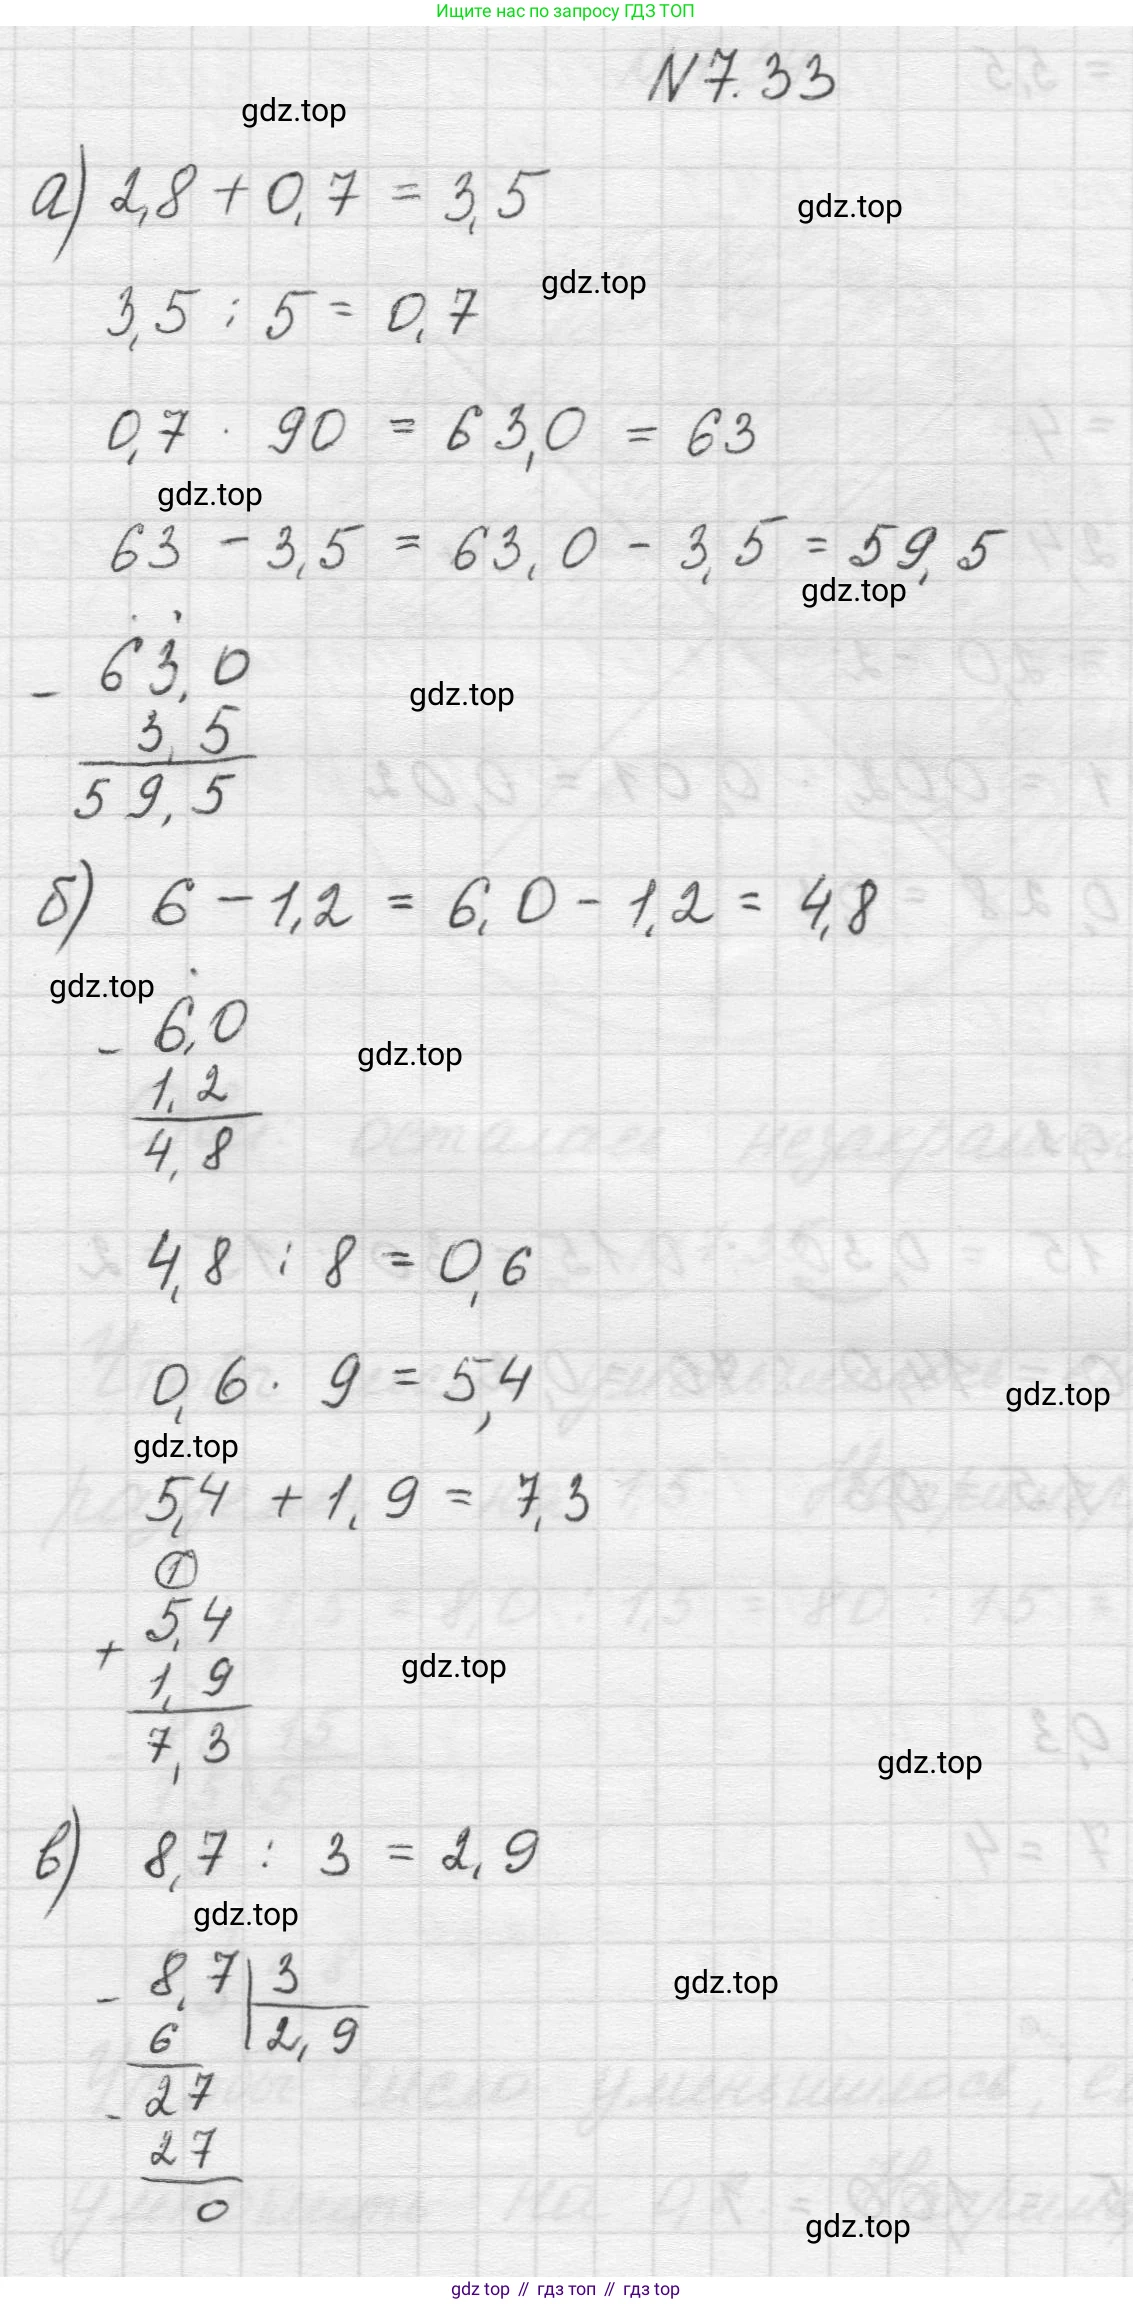 Ищите нас по запросу ГДЗ ТОП
N 7.33
gdz.top
а) 2,8 + 0,7 = 3,5
gdz.top
gdz.top
3,5 : 5 = 0,7
0,7 · 90 = 63,0 = 63
gdz.top
63 - 3,5 = 63,0 - 3,5 = 59,5
gdz.top
- 63,0
gdz.top
3,5
59,5
б) 6 - 1,2 = 6,0 - 1,2 = 4,8
gdz.top
- 6,0
gdz.top
1,2
4,8
4,8 : 8 = 0,6
0,6 · 9 = 5,4
gdz.top
gdz.top
5,4 + 1,9 = 7,3
1
+ 5,4
gdz.top
1,9
7,3
gdz.top
в) 8,7 : 3 = 2,9
gdz.top
- 8,7 | 3
gdz.top
6 2,9
- 27
27
0
gdz.top
gdz top // гдз топ // гдз top